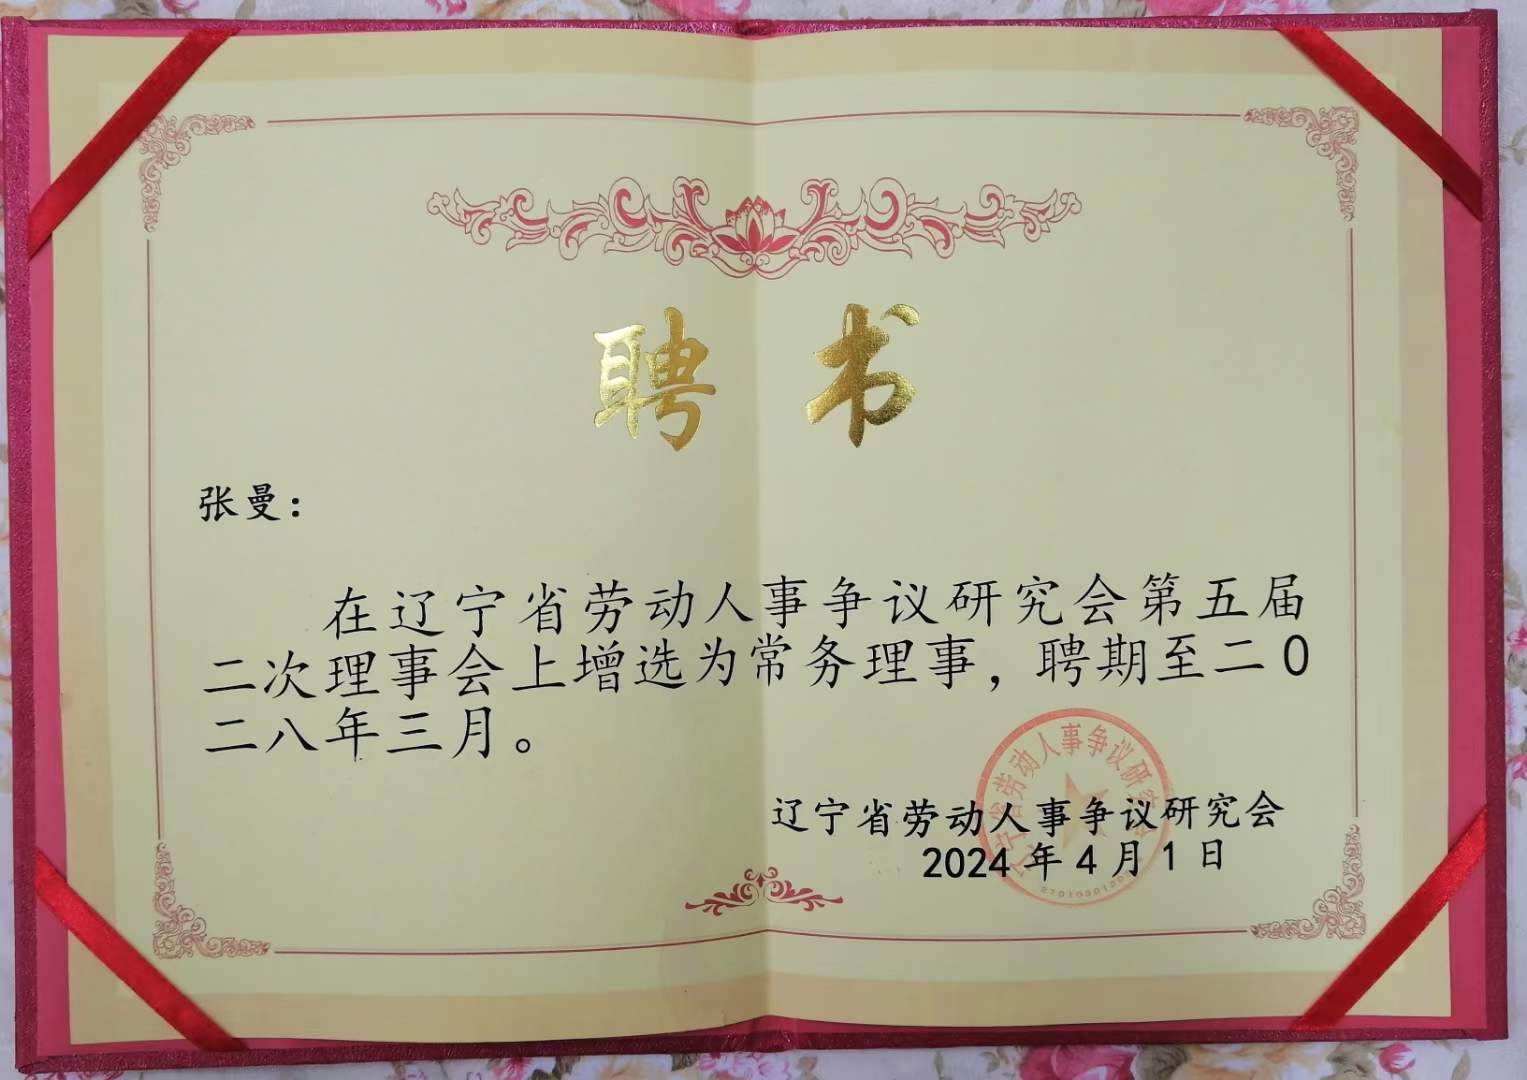 聘书
张曼：
在辽宁省劳动人事争议研究会第五届
二次理事会上增选为常务理事，聘期至二0
二八年三月。
辽宁省劳动人事争议研究会
2024年4月1日
辽宁省劳动人事争议研究会